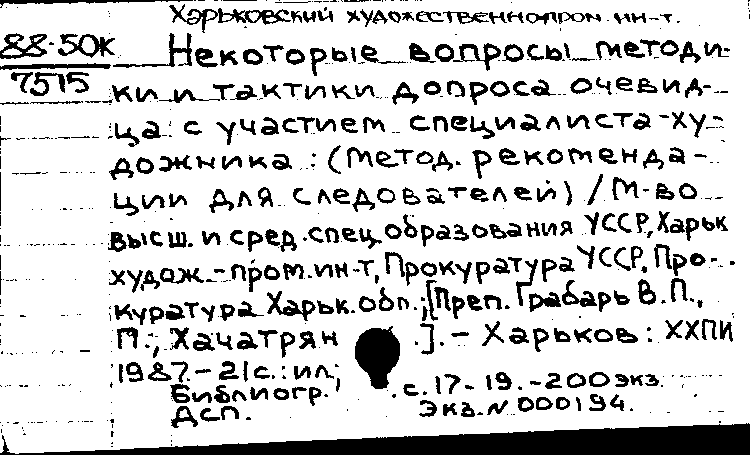 Харьковский художественнопром. ин-т.
88-50к
7515
Некоторые вопросы методи-
ки и тактики допроса очевид-
ца с участием специалиста-ху-
дожника : (Метод. рекоменда-
ции для следователей) / М-во
высш. и сред. спец. образования УССР, Харьк
худож.-пром. ин-т, Прокуратура УССР, Про-
куратура Харьк. обл.; [Преп. Грабарь В. П.,
П., Хачатрян .]. - Харьков : ХХПИ
1987. - 21 с. : ил;
Библиогр. с. 17-19. - 200 экз.
Дсп. Экз. N 000194.